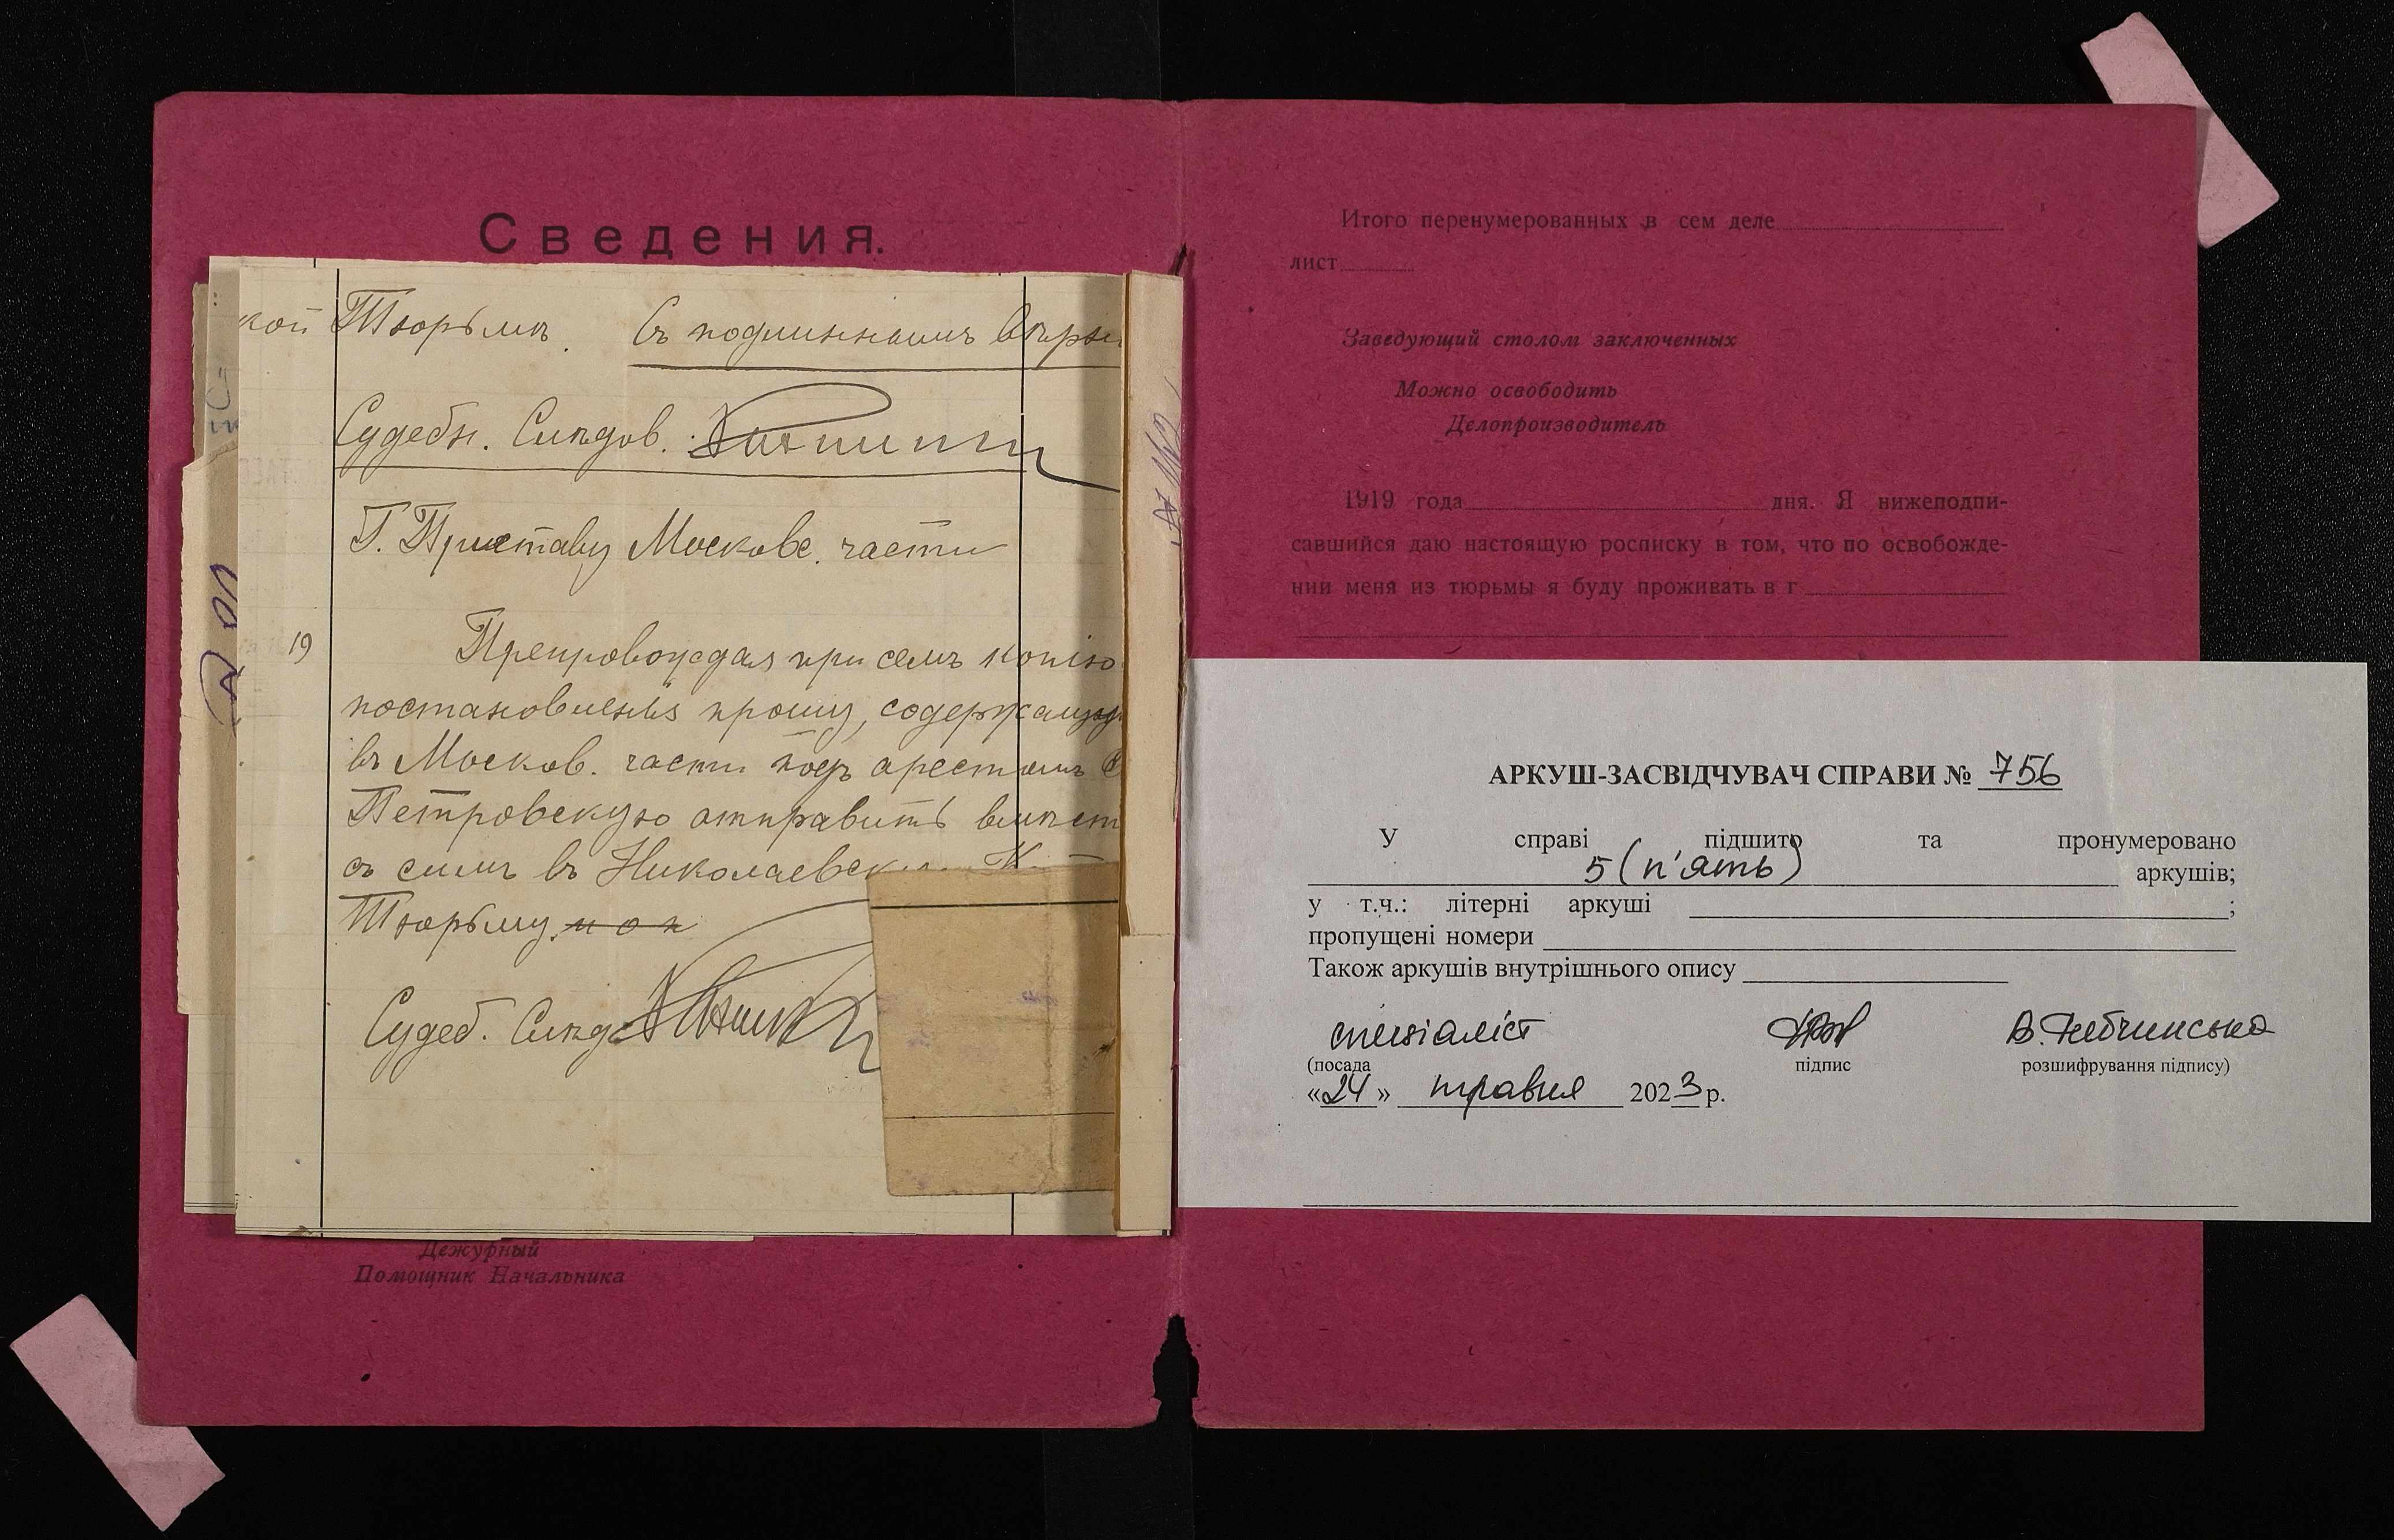 Сведения.
кой Тюрьмѣ. Съ подлиннымъ вѣрн
Судебн. Слѣдов.
Г. Приставу Московс. части
19
Препровождая при семъ копію
постановленія прошу, содержащую
въ Москов. части подъ арестомъ
Петровскую отправить вмѣст
съ симъ въ Николаевск
Тюрьму.
Судеб. Слѣд
Дежурный
Помощник Начальника
Итого перенумерованных в сем деле
лист
Заведующий столом заключенных
Можно освободить
Делопроизводитель
1919 года дня. Я нижеподпи-
савшийся даю настоящую росписку в том, что по освобожде-
нии меня из тюрьмы я буду проживать в г
АРКУШ-ЗАСВІДЧУВАЧ СПРАВИ № 756
У справі підшито та пронумеровано
5 (п'ять) аркушів;
у т.ч.: літерні аркуші ;
пропущені номери
Також аркушів внутрішнього опису
спеціаліст
(посада підпис розшифрування підпису)
«24» травня 2023 р.